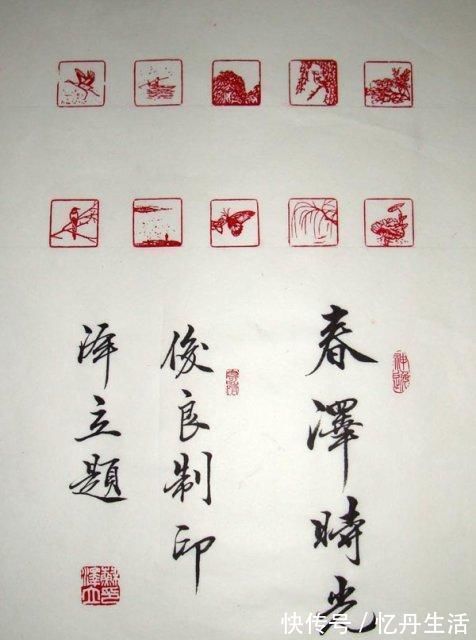 春澤時光
俊良制印
泽立題
快传号 / 忆丹生活